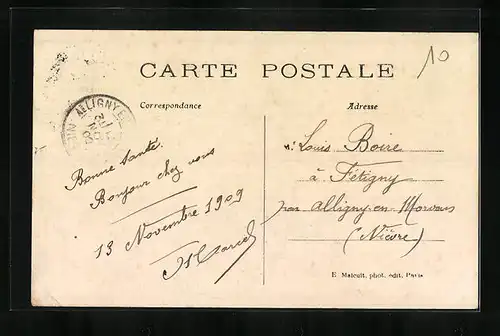 10
CARTE POSTALE
Correspondance
Adresse
ALLIGNY
Bonne Santé.
Bonjour chez vous
13 Novembre 1909
Mr Louis Boire
à Fétigny
par Alligny-en-Morvan
(Nièvre)
E. Mateuit, phot. édit. Paris